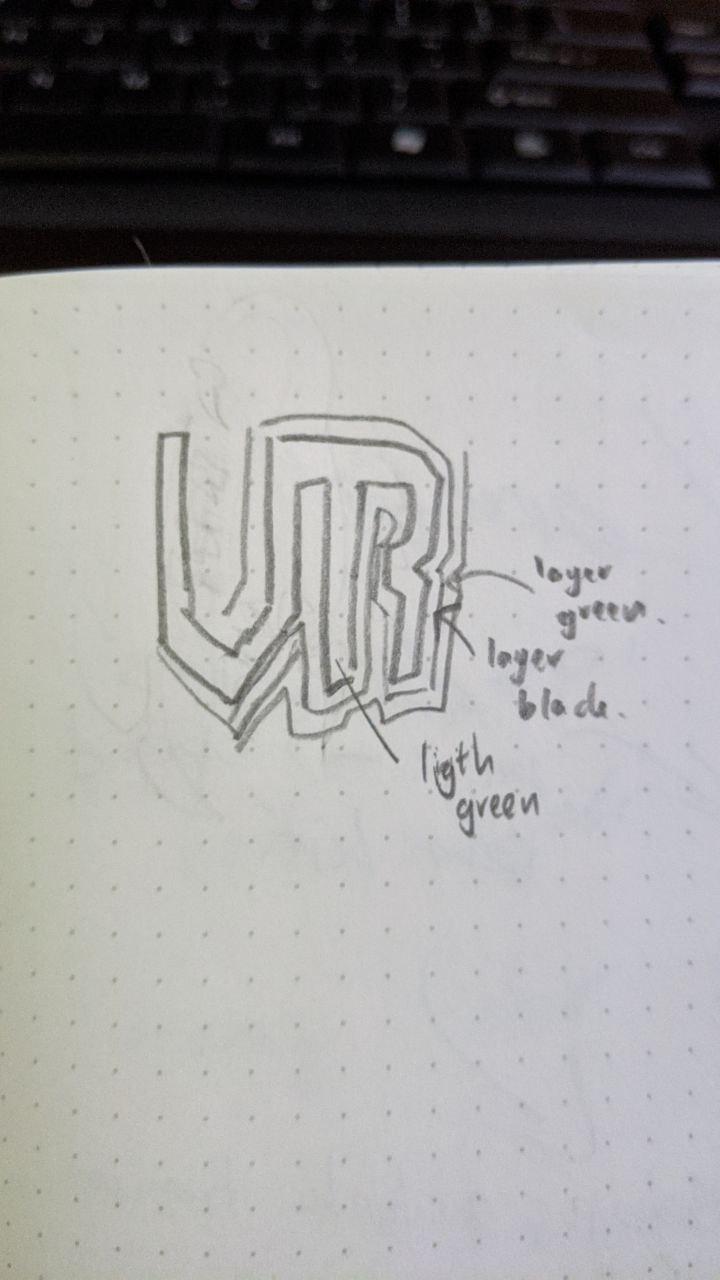 UR
layer
green.
layer
blade.
ligth
green